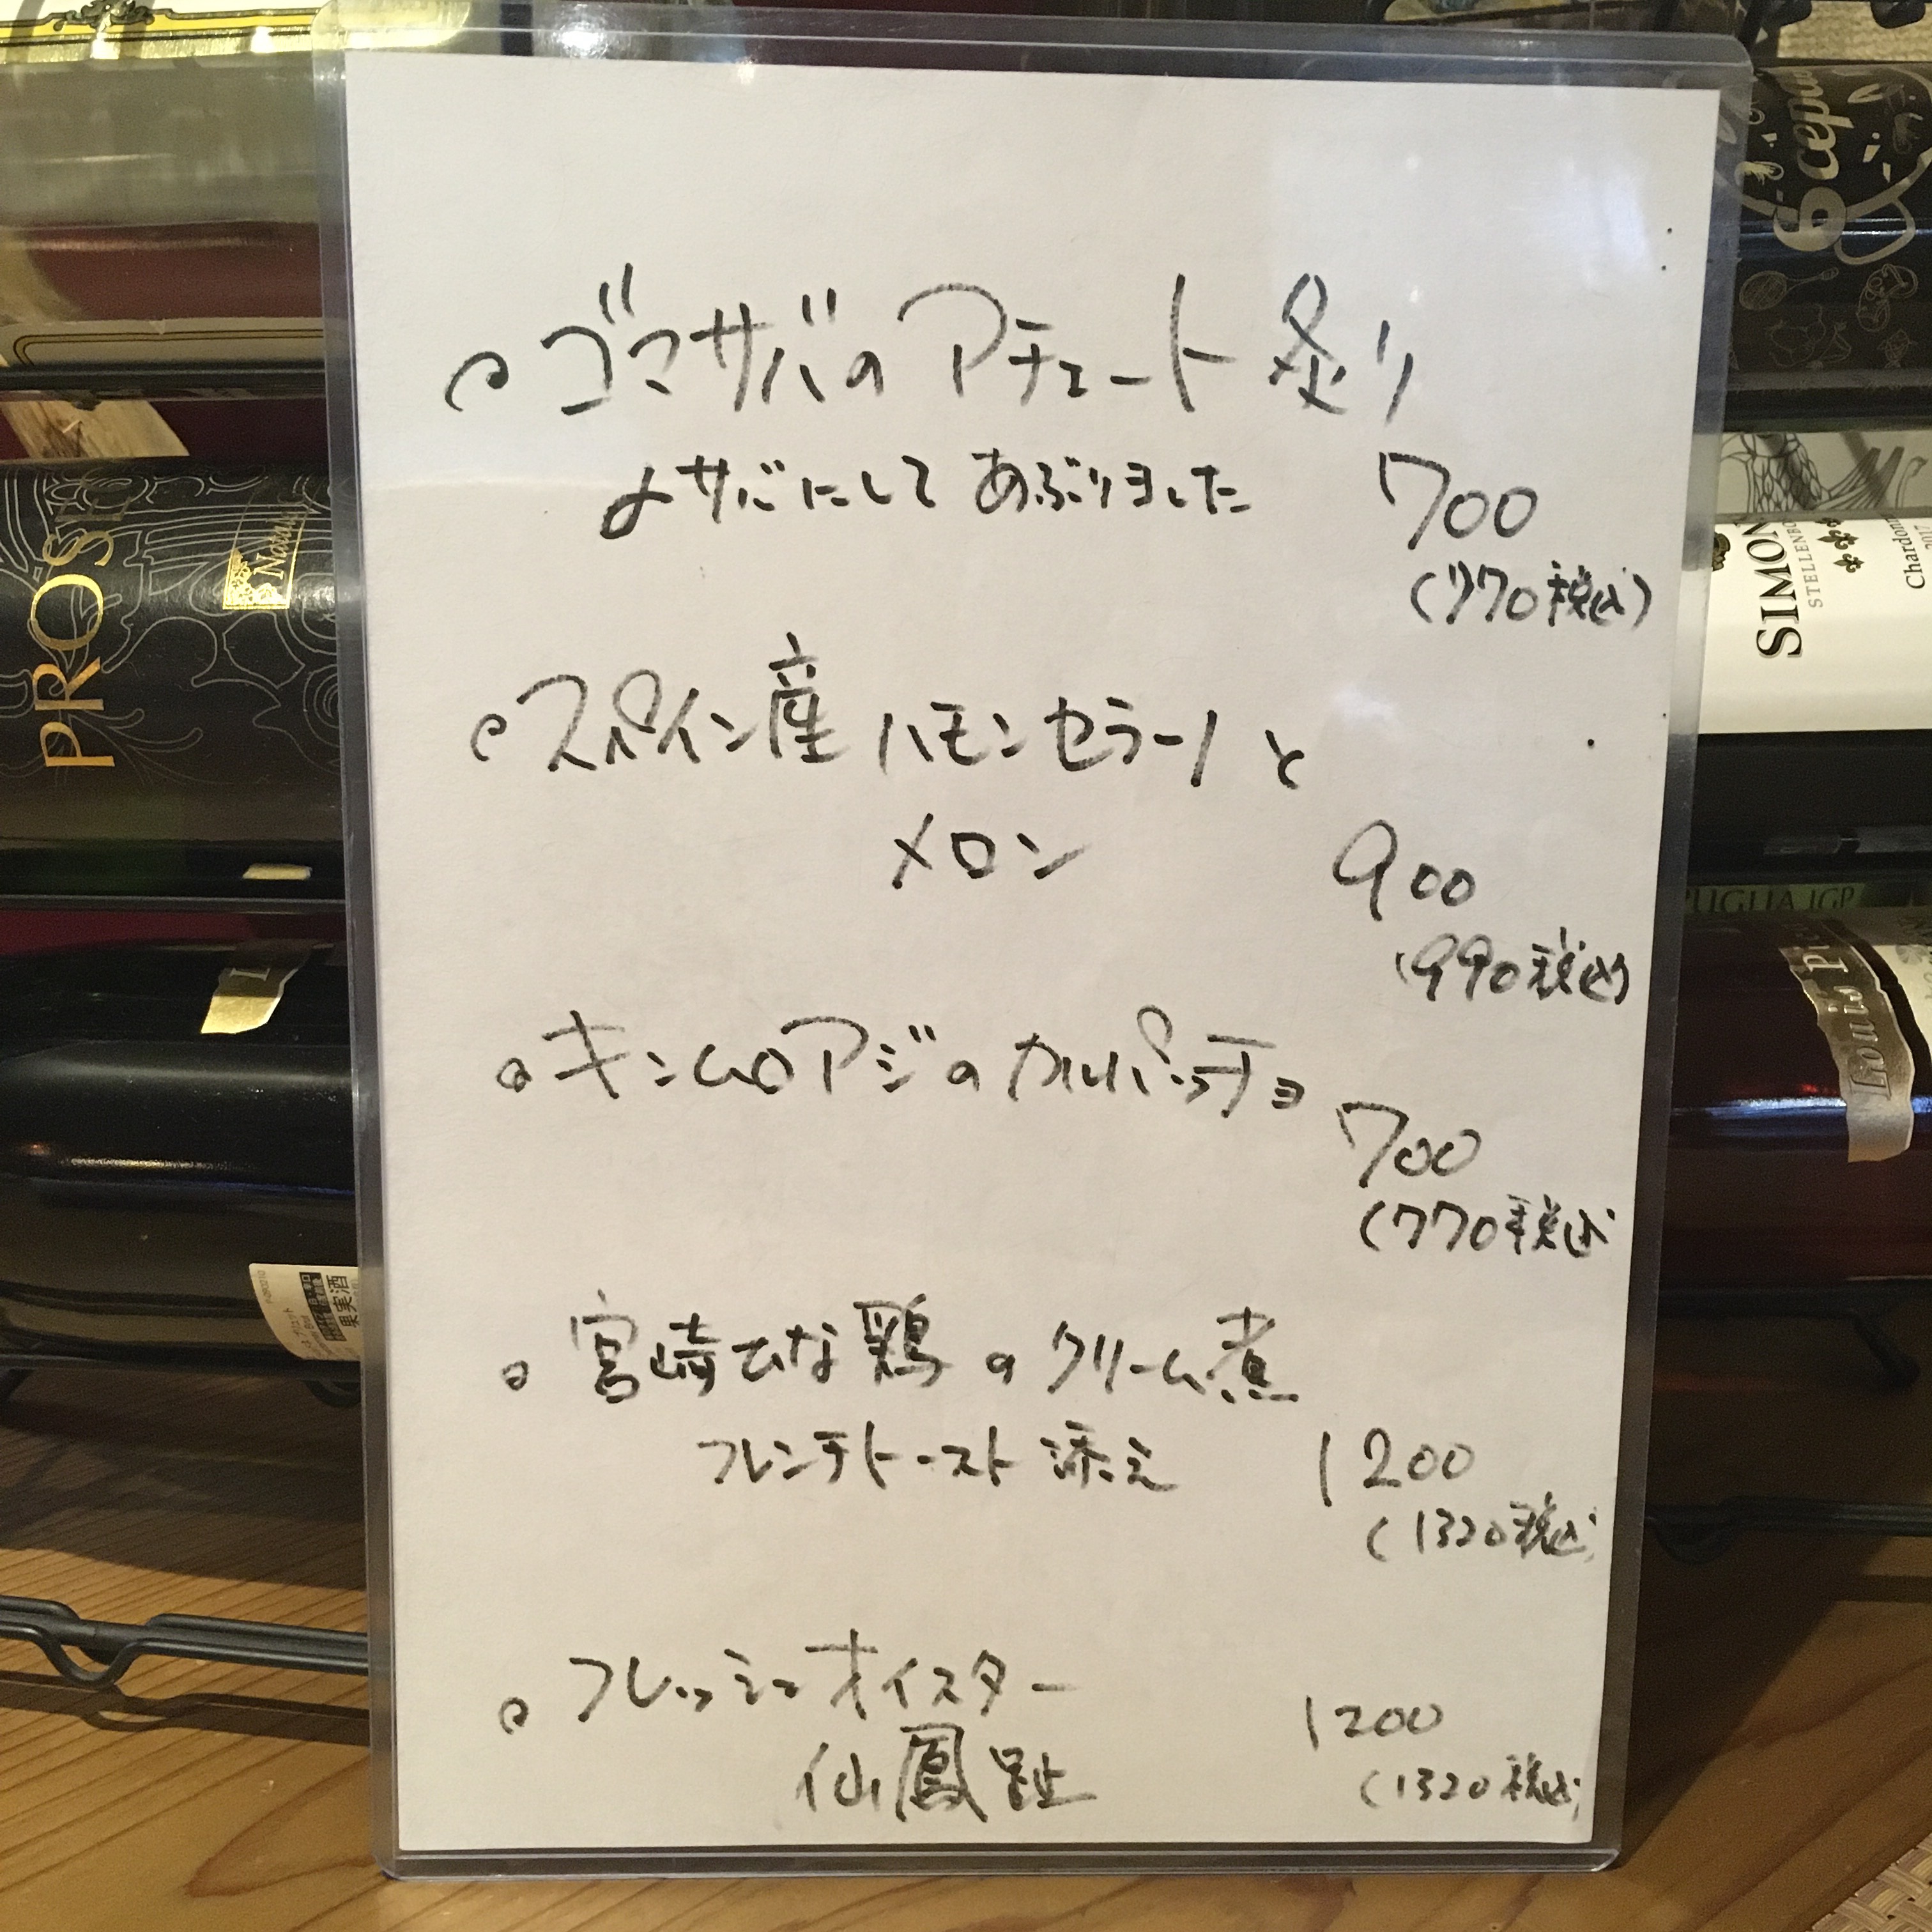 ゴマサバのアチェート炙り
〆サバにしてあぶりました 700
(770税込)
スペイン産ハモンセラーノと
メロン 900
(990税込)
キンムロアジのカルパッチョ
700
(770税込
宮崎ひな鶏のクリーム煮
フレンチトースト添え 1200
(1320税込)
フレッシュオイスター 1200
仙鳳趾 (1320税込)
PROSE
6cepas
SIMON
STELLENBO
Chardonn
PUGLIA IGP
Louis P
果実酒